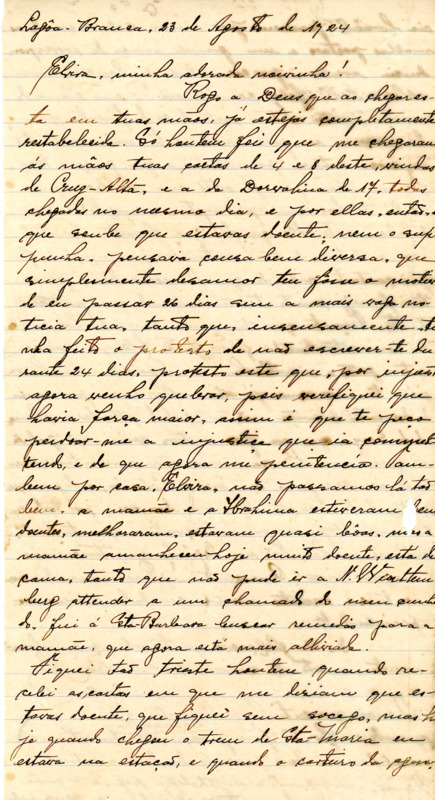 Lagôa-Branca, 23 de Agosto de 1924
Elvira, minha adorada noivinha!
Rogo a Deus que ao chegar es-
ta em tuas mãos, já estejas completamente
restabelecida. Só hontem foi que me chegaram
ás mãos tuas cartas de 4 e 8 deste, vindas
de Cruz-Alta, e a da Dorvalina de 17, todas
chegadas no mesmo dia, e por ellas, então, é
que soube que estavas doente, nem o sup
punha. pensava cousa bem diversa, que
simplesmente desamor teu fôsse o motivo
de eu passar 26 dias sem a mais vaga no-
ticia tua, tanto que, insensamente, ti
nha feito o protesto de não escrever-te du
rante 24 dias, protesto este que, por injusto
agora venho quebrar, pois verifiquei que
havia força maior, assim é que te peço
perdoar-me a injustiça que ia commet
tendo, e de que agora me penitencio. Tam-
bem por casa, Elvira, não passamos lá tão
bem. a mamãe e a Ibrahima estiveram bem
doentes, melhoraram, estavam quasi bôas, mas a
mamãe amanheceu hoje muito doente, está de
cama, tanto que não pude ir a N. Wurttem
berg attender a um chamado do meu cunha
do. fui á Sta Barbara buscar remedio para a
mamãe, que agora está mais alliviada.
Fiquei tão triste hontem quando re-
cebi as cartas em que me diziam que es-
tavas doente, que fiquei sem socego, mas ho
je quando chegou o trem de Sta Maria eu
estava na estação, e quando o carteiro da agen-